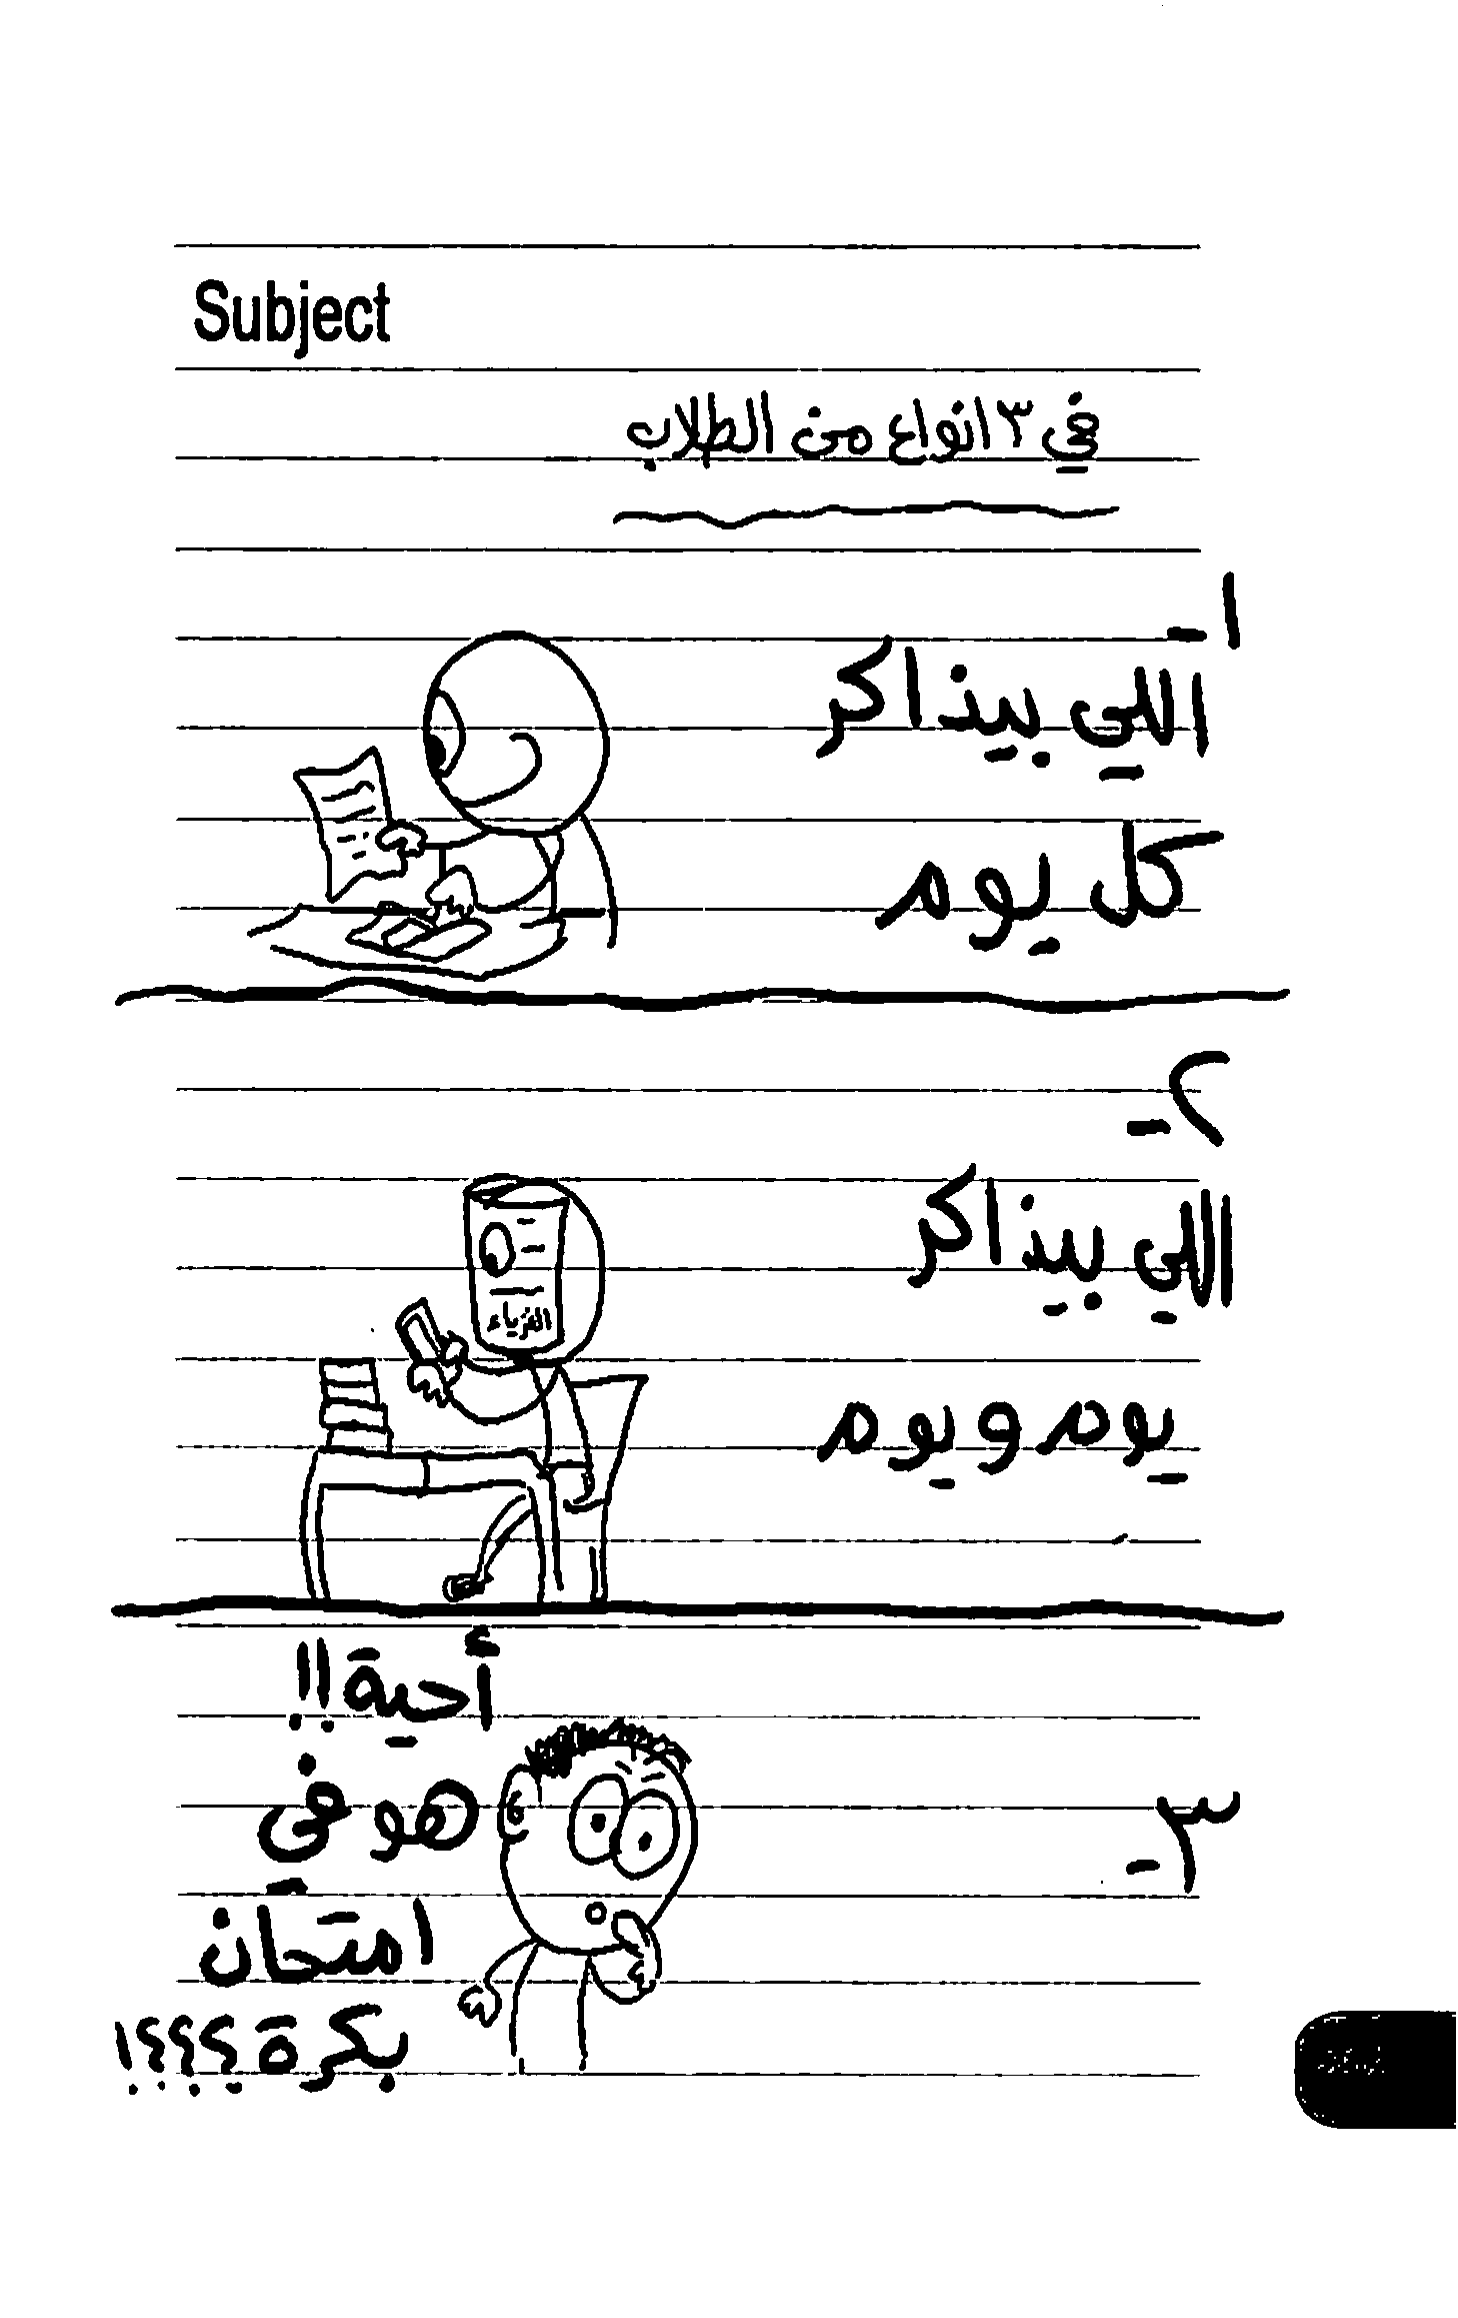 Subject
في ٣ انواع من الطلاب
١-
اللي بيذاكر
كل يوم
٢-
اللي بيذاكر
الفزياء
يوم و يوم
أحية!!
٣-
هو في
امتحان
بكرة ؟؟؟!